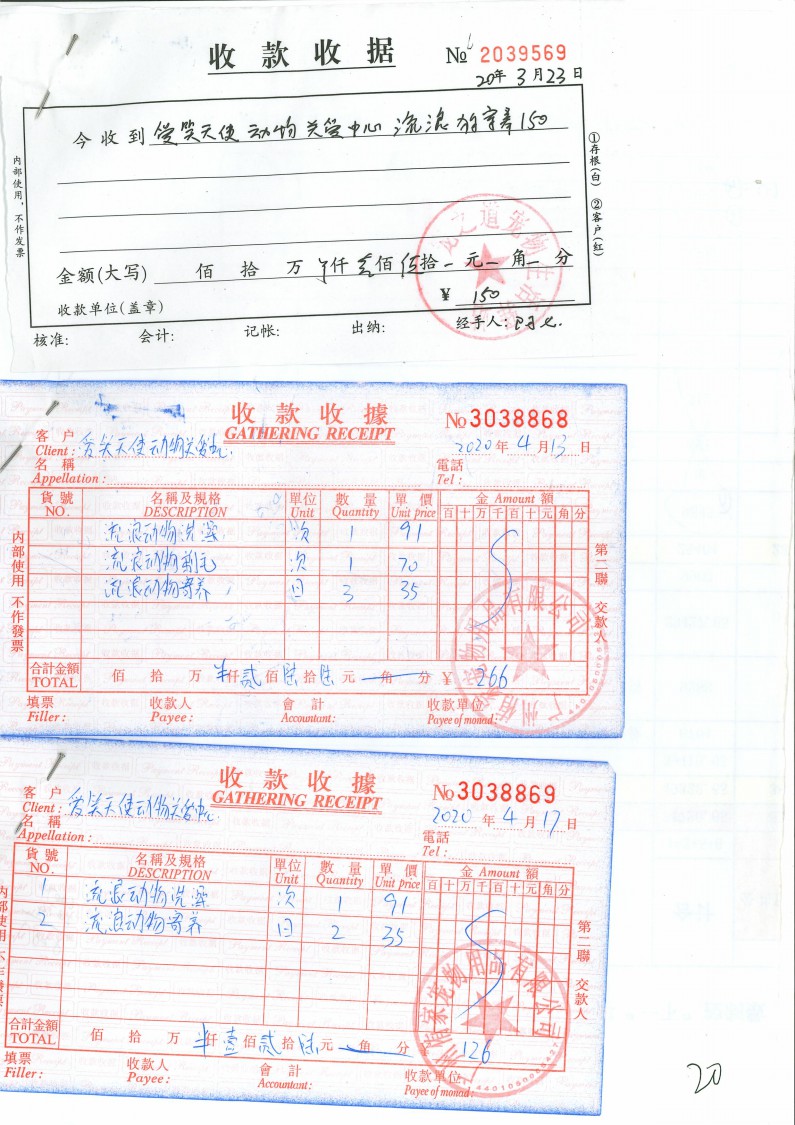 收款收据
№ 2039569
20年 3月23日
今收到 爱笑天使动物关爱中心 流浪狗寄养150
内部使用，不作发票
①存根(白) ②客户(红)
金额(大写) 佰 拾 万 仟 壹佰伍拾 元 角 分
¥ 150
收款单位(盖章)
核准: 会计: 记帐: 出纳: 经手人:
收款收據
GATHERING RECEIPT
№3038868
客户 爱笑天使动物关爱中心
Client:
2020年 4月13日
名稱
Appellation:
電話
Tel:
貨號 名稱及規格 單位 數量 單價 金 Amount 額
NO. DESCRIPTION Unit Quantity Unit price 百十万千百十元角分
流浪动物洗澡 次 1 91
流浪动物剃毛 次 1 70
流浪动物寄养 日 3 35
内部使用 不作發票
第二聯 交款人
合計金額 佰 拾 万 仟贰佰陆拾陆元 角 分 ¥ 266
TOTAL
填票 收款人 會計 收款單位
Filler: Payee: Accountant: Payee of monad:
收款收據
GATHERING RECEIPT
№3038869
客户 爱笑天使动物关爱中心
Client:
2020年 4月17日
名稱
Appellation:
電話
Tel:
貨號 名稱及規格 單位 數量 單價 金 Amount 額
NO. DESCRIPTION Unit Quantity Unit price 百十万千百十元角分
1 流浪动物洗澡 次 1 91
2 流浪动物寄养 日 2 35
内部使用 不作發票
第二聯 交款人
合計金額 佰 拾 万 仟壹佰贰拾陆元 角 分 ¥ 126
TOTAL
填票 收款人 會計 收款單位
Filler: Payee: Accountant: Payee of monad:
20